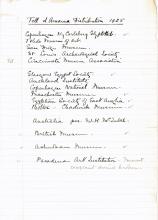 Tell el Amarna Distribution 1925
Copenhagen Ny Carlsberg Glyptothek
Toledo Museum of Art
San Diego Museum
St Louis Archaeological Society
Cincinnati Museum Association
Glasgow Egypt Society
Auckland Institute
Copenhagen National Museum
Manchester Museum
Egyptian Society of East Anglia
Bolton Chadwick Museum
Australia per W.H.
British Museum
Ashmolean Museum
Pasadena Art Institute